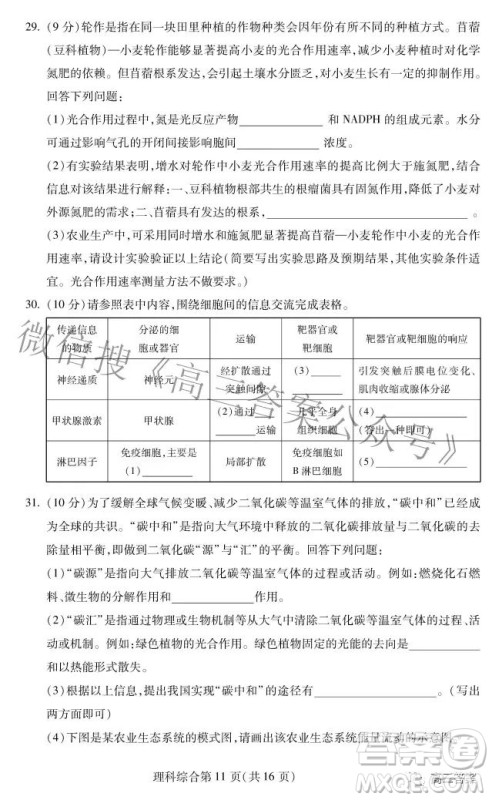 29. (9 分)轮作是指在同一块田里种植的作物种类会因年份有所不同的种植方式。苜蓿
(豆科植物)—小麦轮作能够显著提高小麦的光合作用速率,减少小麦种植时对化学
氮肥的依赖。但苜蓿根系发达,会引起土壤水分匮乏,对小麦生长有一定的抑制作用。
回答下列问题:
(1)光合作用过程中,氮是光反应产物____________和 NADPH 的组成元素。水分
可通过影响气孔的开闭间接影响胞间____________浓度。
(2)有实验结果表明,增水对轮作中小麦光合作用速率的提高比例大于施氮肥,结合
信息对该结果进行解释:一、豆科植物根部共生的根瘤菌具有固氮作用,降低了小麦对
外源氮肥的需求;二、苜蓿具有发达的根系,____________。
(3)农业生产中,可采用同时增水和施氮肥提高苜蓿—小麦轮作中小麦的光合作用速
率,请设计实验验证以上结论(简要写出实验思路及预期结果,其他条件适宜且充
足。光合作用速率测量方法不做要求。)
30. (10 分)请参照表中内容,围绕细胞间的信息交流完成表格。
传递信息的物质 分泌的细胞或器官 运输 靶器官或靶细胞 靶器官或靶细胞的响应
神经递质 神经元 经扩散通过突触间隙 (3)______ 引发突触后膜电位变化、肌肉收缩或腺体分泌
甲状腺激素 甲状腺 (2)通过______运输 几乎全身组织细胞 (4)______(答出一种即可)
淋巴因子 免疫细胞,主要是(1)______ 局部扩散 免疫细胞如 B 淋巴细胞 (5)______
31. (10 分)为了缓解全球气候变暖、减少二氧化碳等温室气体的排放,“碳中和”已经成
为全球的共识。“碳中和”是指向大气环境中释放的二氧化碳与大气环境中二氧化碳的去
除量相平衡,即做到二氧化碳“源”与“汇”的平衡。回答下列问题:
(1)“碳源”是指向大气排放二氧化碳等温室气体的过程或活动。例如:燃烧化石燃
料、微生物的分解作用和____________。
(2)“碳汇”是指通过物理或生物机制等从大气中清除二氧化碳等温室气体的过程、活
动或机制。例如:绿色植物的光合作用。绿色植物固定的光能的去向是____________
和以热能形式散失。
(3)根据以上信息,提出实现“碳中和”的途径有____________、____________。(写出
两方面即可)
(4)下图是某农业生态系统的模式图,请画出该农业生态系统能量流动的示意图。
理科综合第 11 页(共 16 页)
微信搜《高三答案公众号》